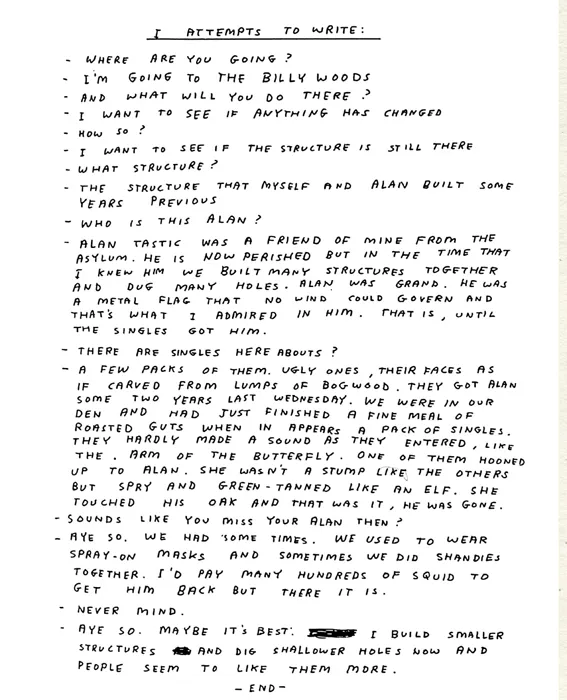 I ATTEMPTS TO WRITE:
- WHERE ARE YOU GOING?
- I'M GOING TO THE BILLY WOODS
- AND WHAT WILL YOU DO THERE?
- I WANT TO SEE IF ANYTHING HAS CHANGED
- HOW SO?
- I WANT TO SEE IF THE STRUCTURE IS STILL THERE
- WHAT STRUCTURE?
- THE STRUCTURE THAT MYSELF AND ALAN BUILT SOME
YEARS PREVIOUS
- WHO IS THIS ALAN?
- ALAN TASTIC WAS A FRIEND OF MINE FROM THE
ASYLUM. HE IS NOW PERISHED BUT IN THE TIME THAT
I KNEW HIM WE BUILT MANY STRUCTURES TOGETHER
AND DUG MANY HOLES. ALAN WAS GRAND. HE WAS
A METAL FLAG THAT NO WIND COULD GOVERN AND
THAT'S WHAT I ADMIRED IN HIM. THAT IS, UNTIL
THE SINGLES GOT HIM.
- THERE ARE SINGLES HERE ABOUTS?
- A FEW PACKS OF THEM. UGLY ONES, THEIR FACES AS
IF CARVED FROM LUMPS OF BOGWOOD. THEY GOT ALAN
SOME TWO YEARS LAST WEDNESDAY. WE WERE IN OUR
DEN AND HAD JUST FINISHED A FINE MEAL OF
ROASTED GUTS WHEN IN APPEARS A PACK OF SINGLES.
THEY HARDLY MADE A SOUND AS THEY ENTERED, LIKE
THE . ARM OF THE BUTTERFLY. ONE OF THEM MOONED
UP TO ALAN. SHE WASN'T A STUMP LIKE THE OTHERS
BUT SPRY AND GREEN-TANNED LIKE AN ELF. SHE
TOUCHED HIS OAK AND THAT WAS IT, HE WAS GONE.
- SOUNDS LIKE YOU MISS YOUR ALAN THEN?
- AYE SO. WE HAD SOME TIMES. WE USED TO WEAR
SPRAY-ON MASKS AND SOMETIMES WE DID SHANDIES
TOGETHER. I'D PAY MANY HUNDREDS OF SQUID TO
GET HIM BACK BUT THERE IT IS.
- NEVER MIND.
- AYE SO. MAYBE IT'S BEST. I BUILD SMALLER
STRUCTURES AND DIG SHALLOWER HOLES NOW AND
PEOPLE SEEM TO LIKE THEM MORE.
- END -